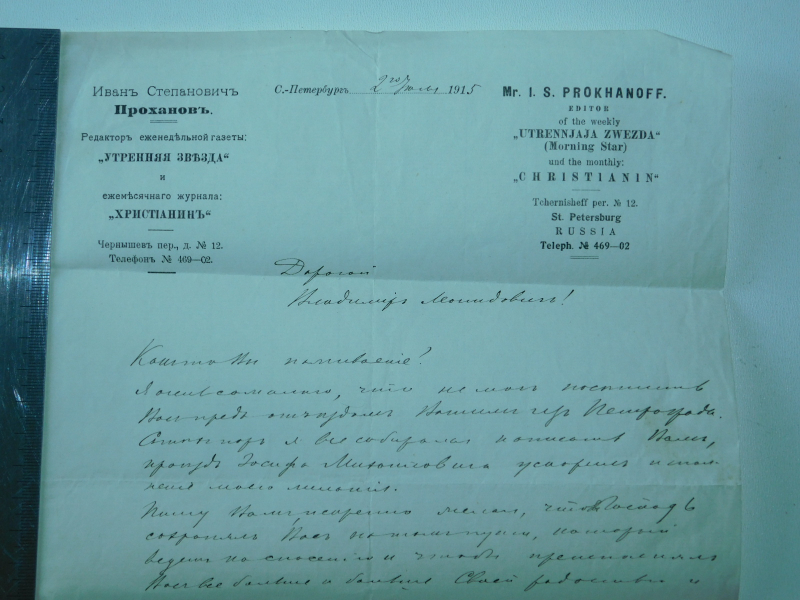 Иванъ Степановичъ
Прохановъ.
Редакторъ еженедѣльной газеты:
„УТРЕННЯЯ ЗВѢЗДА“
и
ежемѣсячнаго журнала:
„ХРИСТІАНИНЪ“
Чернышевъ пер., д. № 12.
Телефонъ № 469—02.
С.-Петербургъ 2го Юля 1915
Mr. I. S. PROKHANOFF.
EDITOR
of the weekly
„UTRENNJAJA ZWEZDA“
(Morning Star)
und the monthly:
„CHRISTIANIN“
Tchernisheff per. № 12.
St. Petersburg
RUSSIA
Teleph. № 469—02
Дорогой
Владимiръ Леонидовичъ!
Како Вы поживаете?
что не могъ посѣтить
Васъ предъ отъѣздомъ Вашимъ изъ Петрограда.
я все собирался написать Вамъ,
Iосифа Михайловича
Господь
сохранялъ Васъ на томъ пути, который
ведетъ ко спасенiю и чтобы преисполнялъ
Васъ все больше и больше Своей радостью и